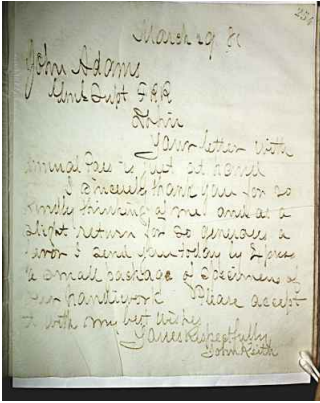 254
March 29 81
John Adams
Genl Supt F R R
Your letter with
annual Pass is just at hand
I sincerely thank you for so
kindly thinking of me and as a
slight return for so generous a
favor I send you today
a small package of specimen of
our handiwork Please accept
it with my best wishes
Yours Respectfully
John Keith